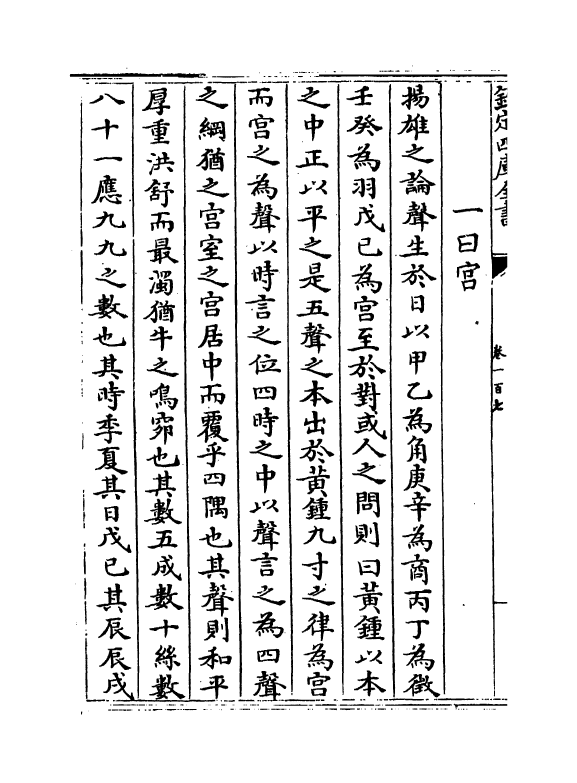 欽定四庫全書
卷一百七
一曰宫
揚雄之論聲生於日以甲乙為角庚辛為商丙丁為徵
壬癸為羽戊己為宫至於對或人之問則曰黄鍾以本
之中正以平之是五聲之本出於黄鍾九寸之律為宫
而宫之為聲以時言之位四時之中以聲言之為四聲
之綱猶之宫室之宫居中而覆乎四隅也其聲則和平
厚重洪舒而最濁猶牛之鳴窌也其數五成數十絲數
八十一應九九之數也其時季夏其日戊己其辰辰戌